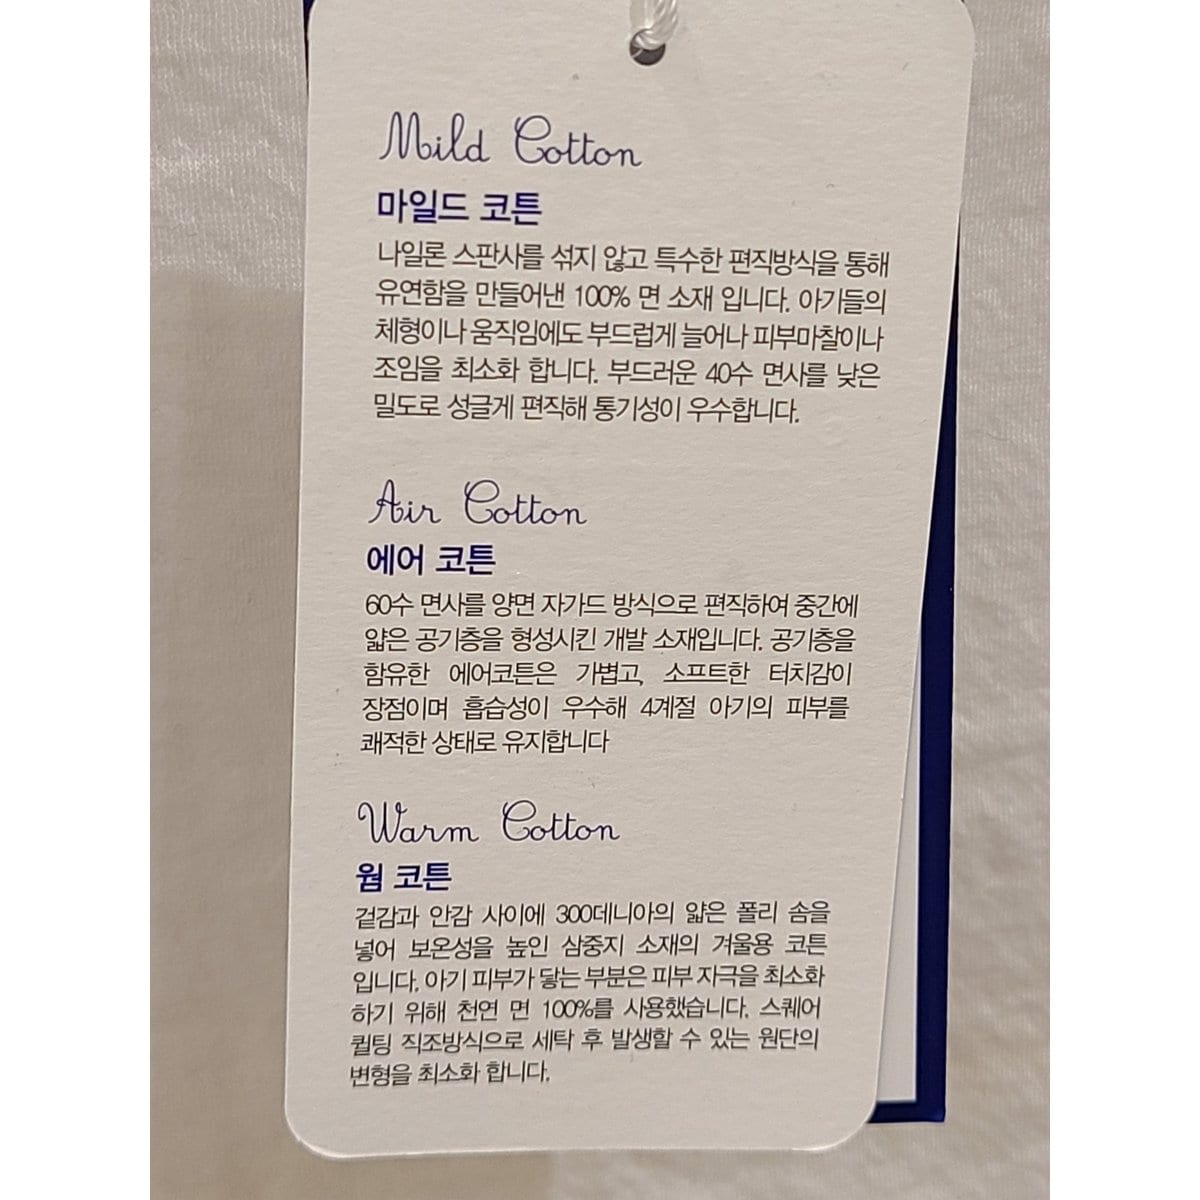 Mild Cotton
마일드 코튼
나일론 스판사를 섞지 않고 특수한 편직방식을 통해
유연함을 만들어낸 100% 면 소재 입니다. 아기들의
체형이나 움직임에도 부드럽게 늘어나 피부마찰이나
조임을 최소화 합니다. 부드러운 40수 면사를 낮은
밀도로 성글게 편직해 통기성이 우수합니다.
Air Cotton
에어 코튼
60수 면사를 양면 자가드 방식으로 편직하여 중간에
얇은 공기층을 형성시킨 개발 소재입니다. 공기층을
함유한 에어코튼은 가볍고, 소프트한 터치감이
장점이며 흡습성이 우수해 4계절 아기의 피부를
쾌적한 상태로 유지합니다
Warm Cotton
웜 코튼
겉감과 안감 사이에 300데니아의 얇은 폴리 솜을
넣어 보온성을 높인 삼중지 소재의 겨울용 코튼
입니다. 아기 피부가 닿는 부분은 피부 자극을 최소화
하기 위해 천연 면 100%를 사용했습니다. 스퀘어
퀼팅 직조방식으로 세탁 후 발생할 수 있는 원단의
변형을 최소화 합니다.